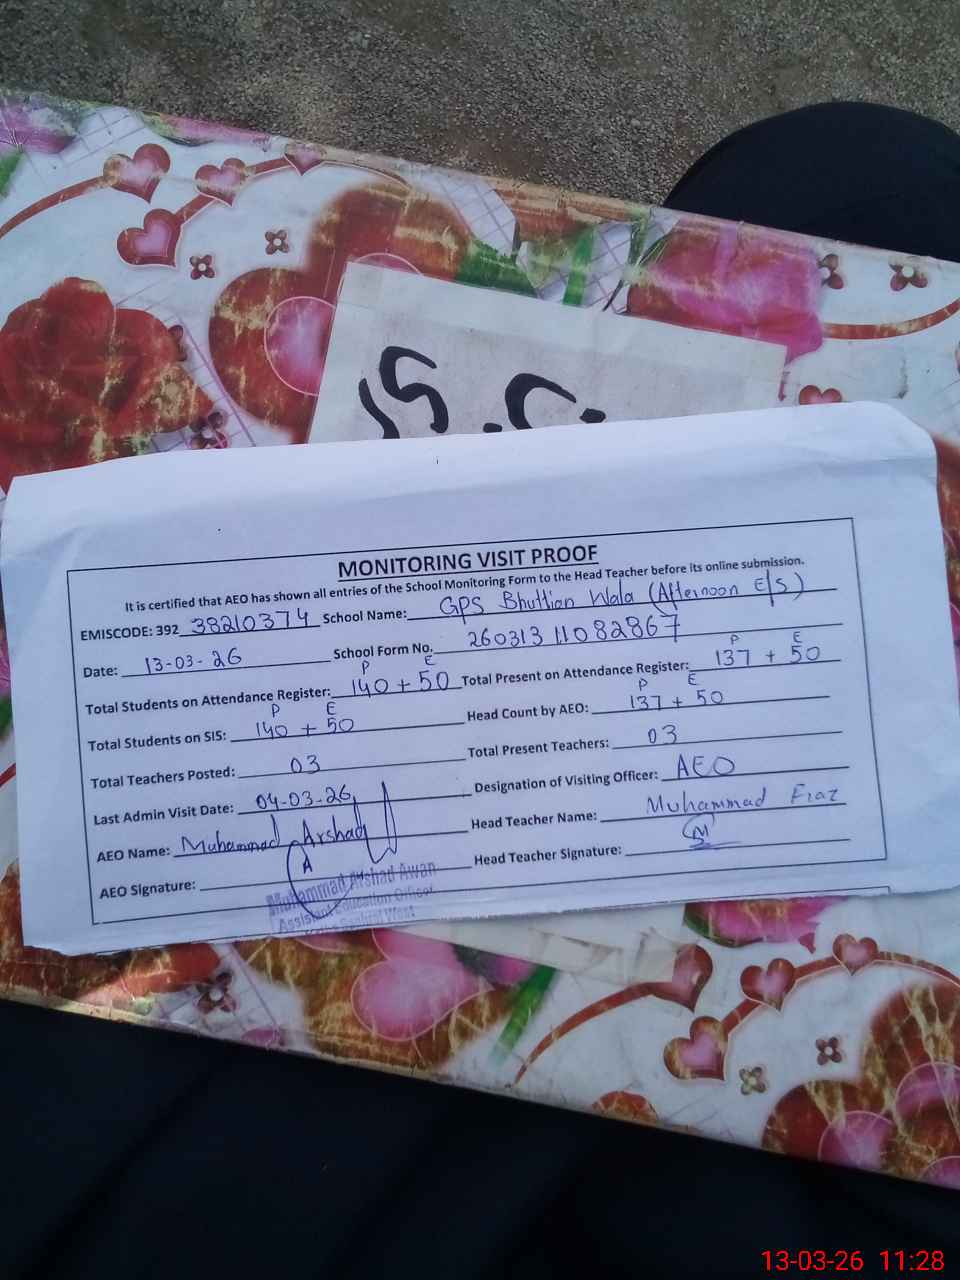 S.C.
MONITORING VISIT PROOF
It is certified that AEO has shown all entries of the School Monitoring Form to the Head Teacher before its online submission.
EMISCODE: 392 38210374 School Name: GPS Bhuttian Wala (Afternoon E/S)
Date: 13-03-26 School Form No. 260313 11082867
Total Students on Attendance Register: P 140 + E 50 Total Present on Attendance Register: P 137 + E 50
Total Students on SIS: P 140 + E 50 Head Count by AEO: P 137 + E 50
Total Teachers Posted: 03 Total Present Teachers: 03
Last Admin Visit Date: 04-03-26 Designation of Visiting Officer: AEO
AEO Name: Muhammad Arshad Head Teacher Name: Muhammad Fiaz
AEO Signature: Head Teacher Signature:
Muhammad Arshad Awan
Assistant Education Officer
Central West
13-03-26 11:28